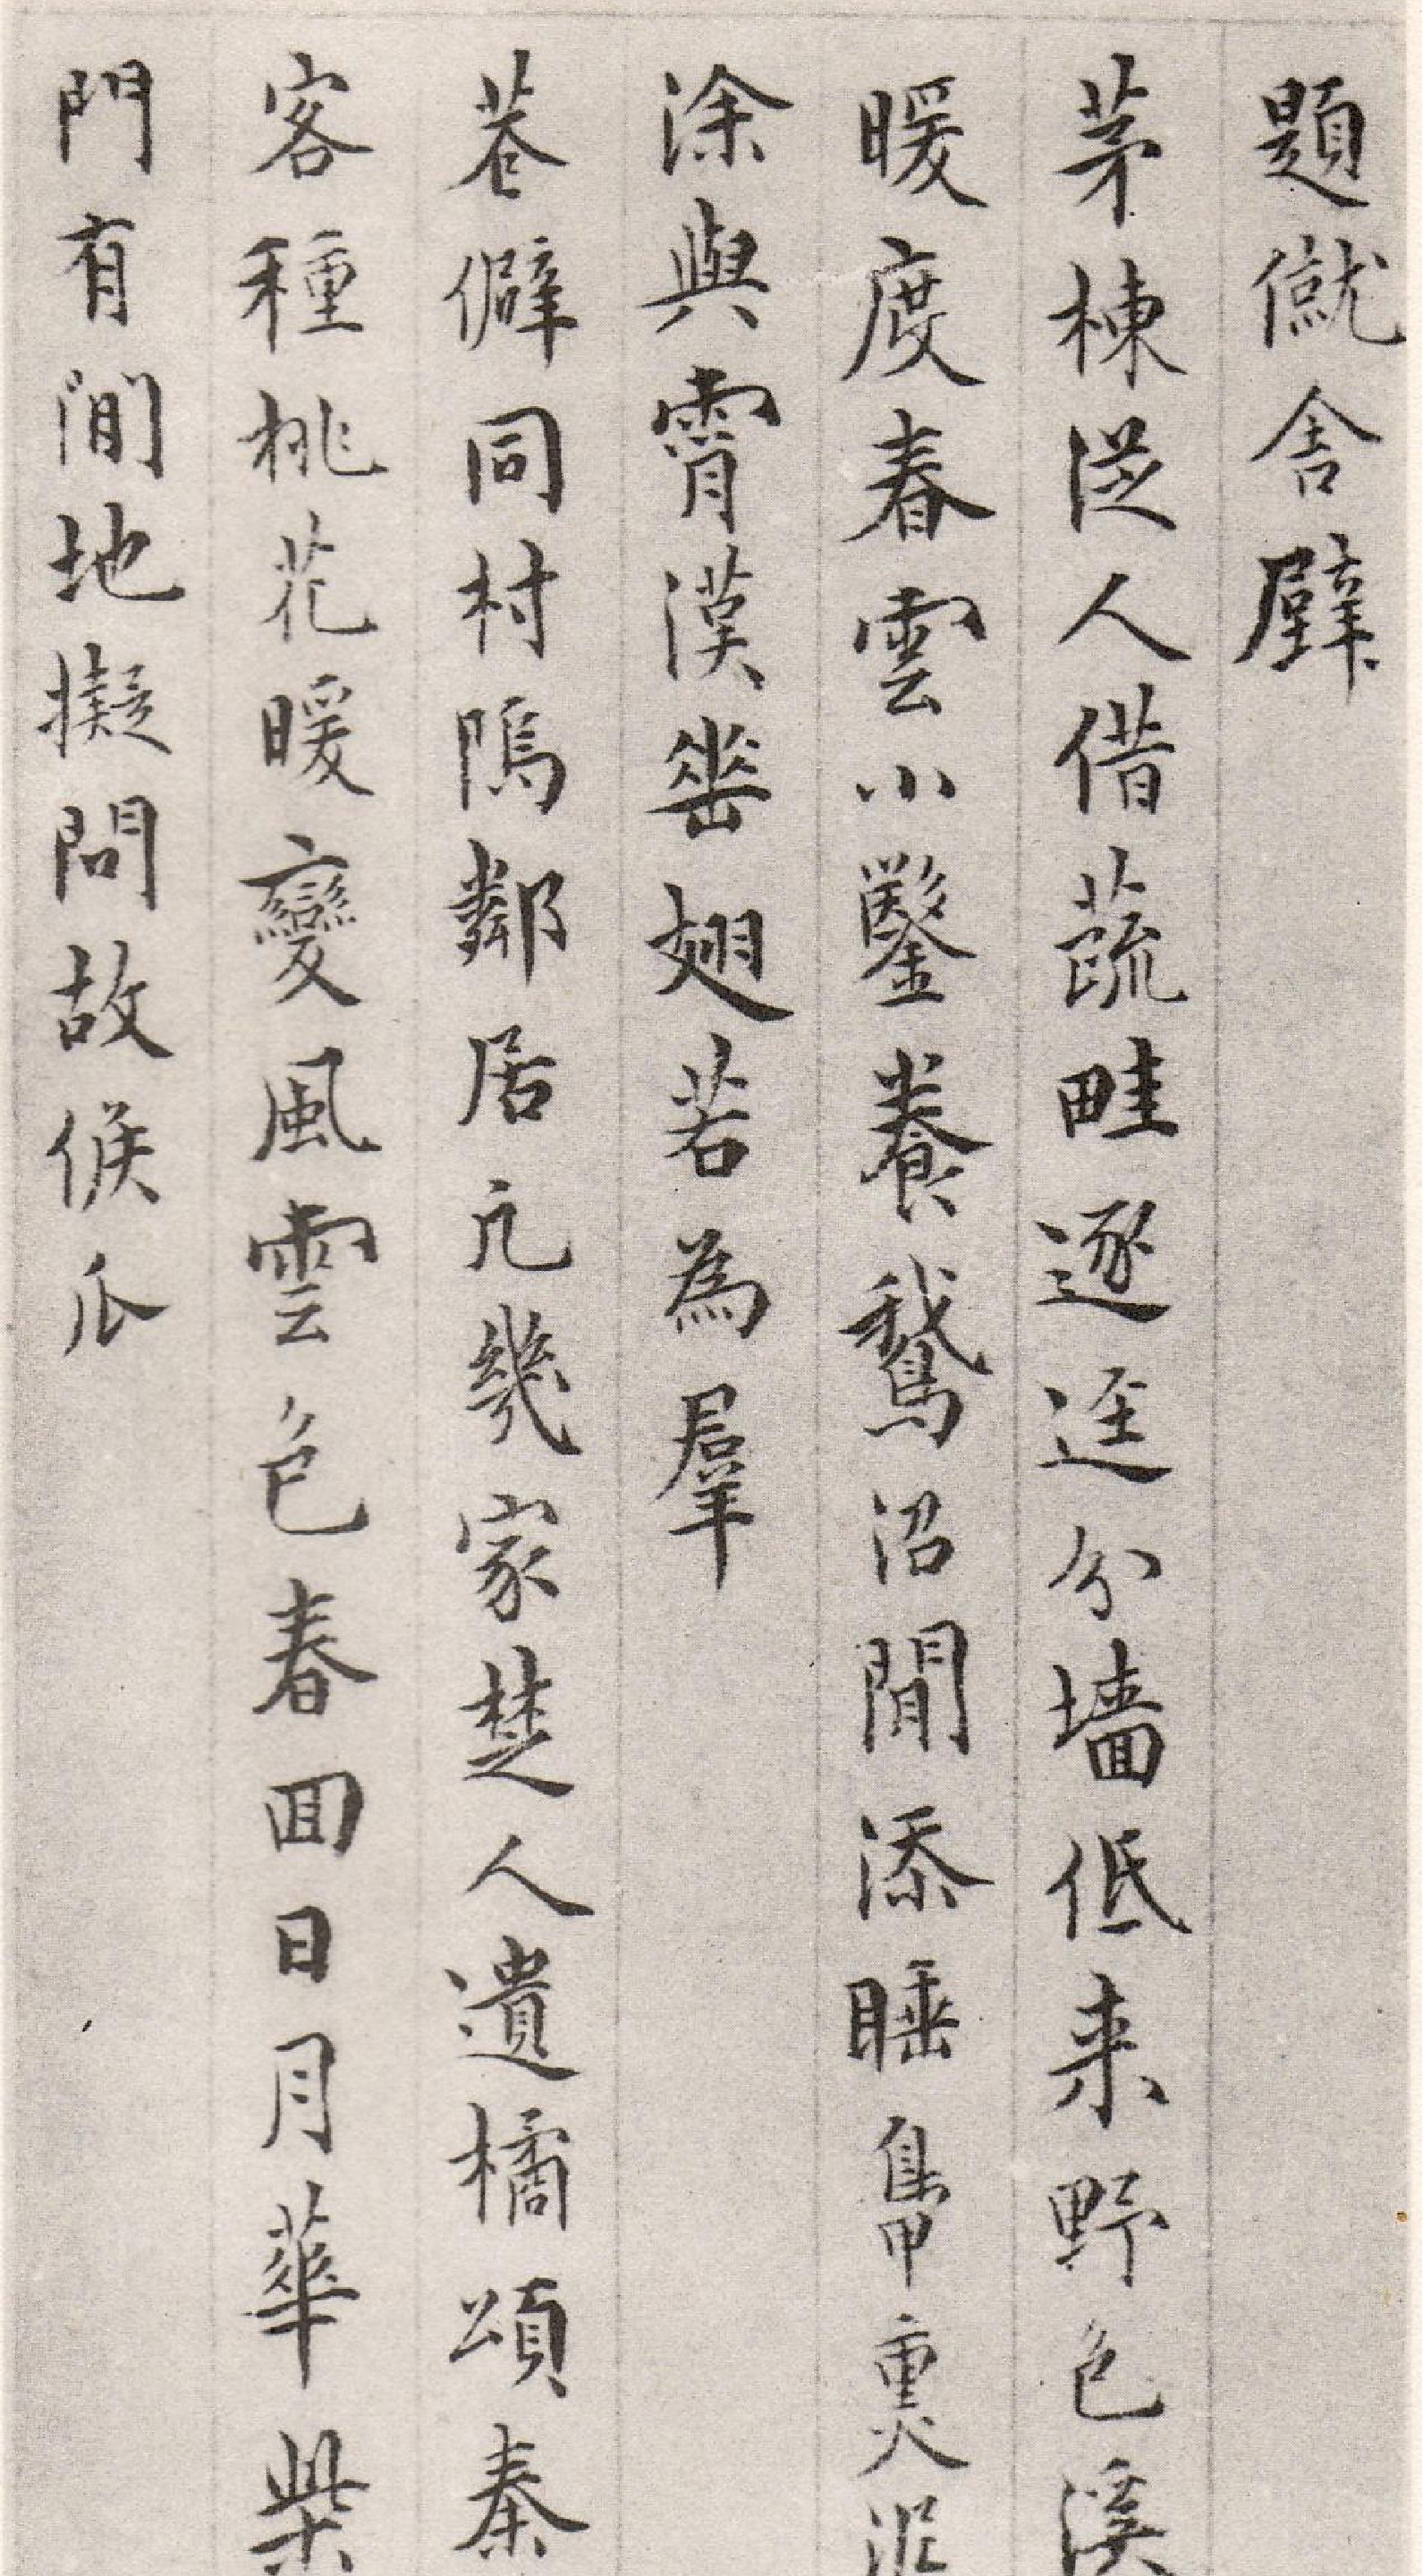 題僦舍壁
茅棟從人借蔬畦逐逕分墻低来野色溪
暖度春雲小鑿養鵞沼閒添睡鴨熏泥
涂與霄漢垂翅若為羣
巷僻同村隖鄰居凢幾家楚人遺橘頌秦
客種桃花暖變風雲色春囬日月華柴
門有閒地擬問故侯瓜